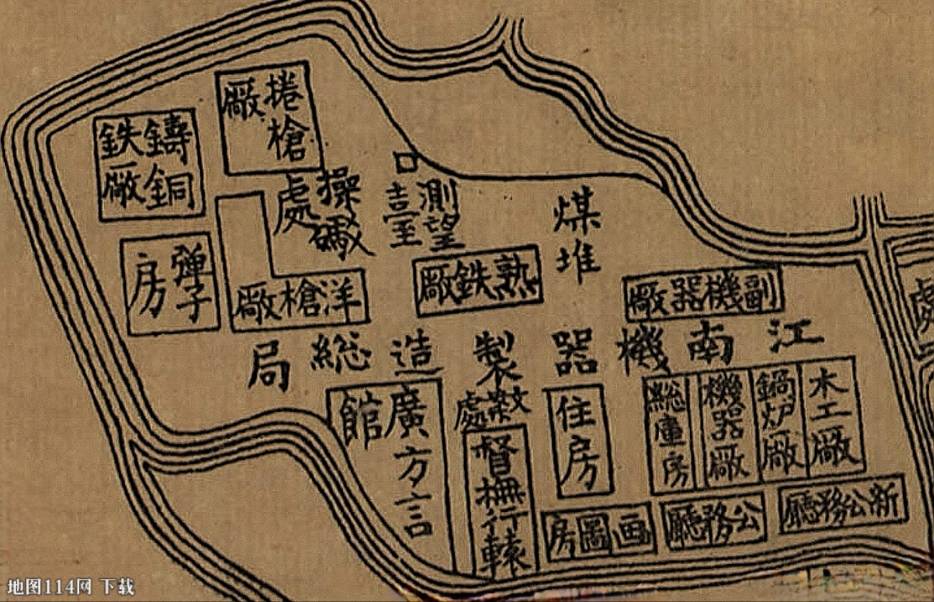 捲槍
廠
鑄銅
鉄廠
操礮
處
測望
臺
煤堆
彈子
房
洋槍廠
熟鉄廠
副機器廠
江南機器製造總局
木工廠
鍋炉廠
機器廠
總庫房
住房
處
督撫行轅
廣方言
館
新公務廳
公務廳
画圖房
地图114网 下载